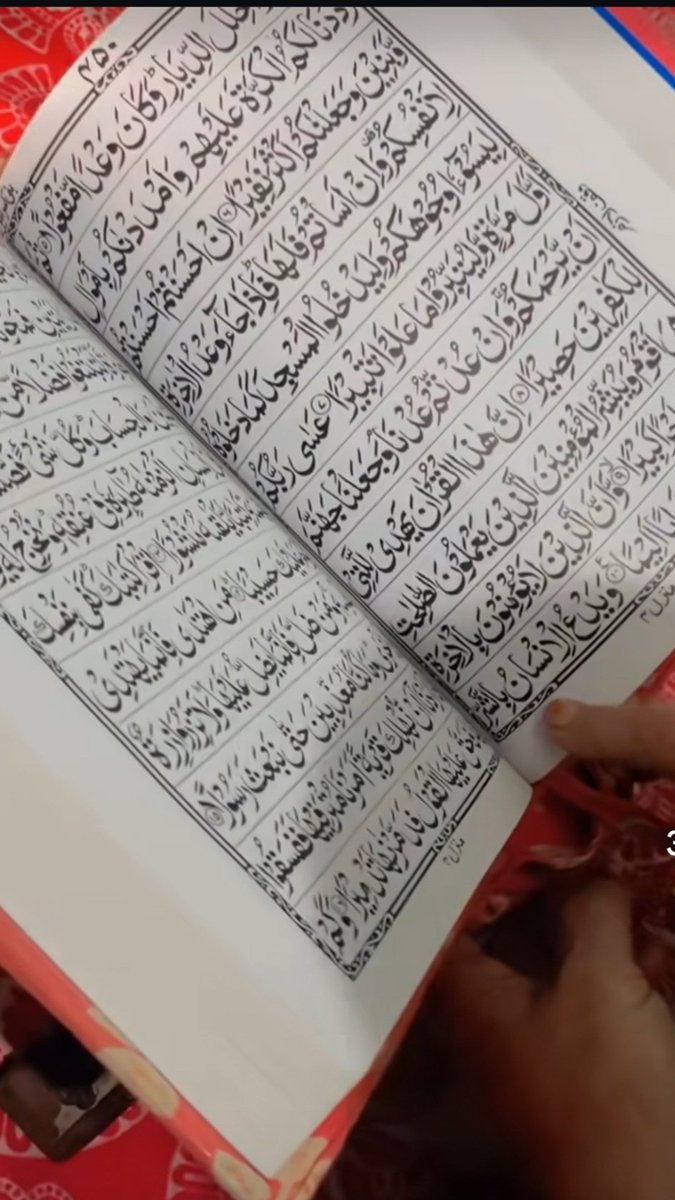 ٢٥٠
الدِّيَارِ ؕ وَكَانَ وَعْدًا مَّفْعُوْلًا ۝٥ ثُمَّ
رَدَدْنَا لَكُمُ الْكَرَّةَ عَلَيْهِمْ وَاَمْدَدْنٰكُمْ بِاَمْوَالٍ
وَّبَنِيْنَ وَجَعَلْنٰكُمْ اَكْثَرَ نَفِيْرًا ۝٦ اِنْ اَحْسَنْتُمْ اَحْسَنْتُمْ
لِاَنْفُسِكُمْ وَاِنْ اَسَاْتُمْ فَلَهَا ؕ فَاِذَا جَآءَ وَعْدُ الْاٰخِرَةِ
لِيَسُوْٓءٗا وُجُوْهَكُمْ وَلِيَدْخُلُوا الْمَسْجِدَ كَمَا دَخَلُوْهُ
اَوَّلَ مَرَّةٍ وَّلِيُتَبِّرُوْا مَا عَلَوْا تَتْبِيْرًا ۝٧ عَسٰى رَبُّكُمْ
اَنْ يَّرْحَمَكُمْ ۚ وَاِنْ عُدْتُّمْ عُدْنَا ۘ وَجَعَلْنَا جَهَنَّمَ
لِلْكٰفِرِيْنَ حَصِيْرًا ۝٨ اِنَّ هٰذَا الْقُرْاٰنَ يَهْدِيْ لِلَّتِيْ
اَقْوَمُ وَيُبَشِّرُ الْمُؤْمِنِيْنَ الَّذِيْنَ يَعْمَلُوْنَ الصّٰلِحٰتِ
كَبِيْرًا ۝٩ وَّاَنَّ الَّذِيْنَ لَا يُؤْمِنُوْنَ بِالْاٰخِرَةِ
اَلِيْمًا ۝١٠ وَيَدْعُ الْاِنْسَانُ بِالشَّرِّ
منزل ٤
فَضْلًا مِّنْ
وَالْحِسَابَ ؕ وَكُلَّ شَيْءٍ
اَلْزَمْنٰهُ طٰٓئِرَهٗ فِيْ عُنُقِهٖ ؕ وَنُخْرِجُ
يَّلْقٰىهُ مَنْشُوْرًا ۝١٣ اِقْرَاْ كِتٰبَكَ ؕ كَفٰى بِنَفْسِكَ
عَلَيْكَ حَسِيْبًا ۝١٤ مَنِ اهْتَدٰى فَاِنَّمَا يَهْتَدِيْ
وَمَنْ ضَلَّ فَاِنَّمَا يَضِلُّ عَلَيْهَا ؕ وَلَا تَزِرُ وَازِرَةٌ
وَمَا كُنَّا مُعَذِّبِيْنَ حَتّٰى نَبْعَثَ رَسُوْلًا ۝١٥
اَنْ نُّهْلِكَ قَرْيَةً اَمَرْنَا مُتْرَفِيْهَا فَفَسَقُوْا
فَحَقَّ عَلَيْهَا الْقَوْلُ فَدَمَّرْنٰهَا تَدْمِيْرًا ۝١٦ وَكَمْ
منزل ٤